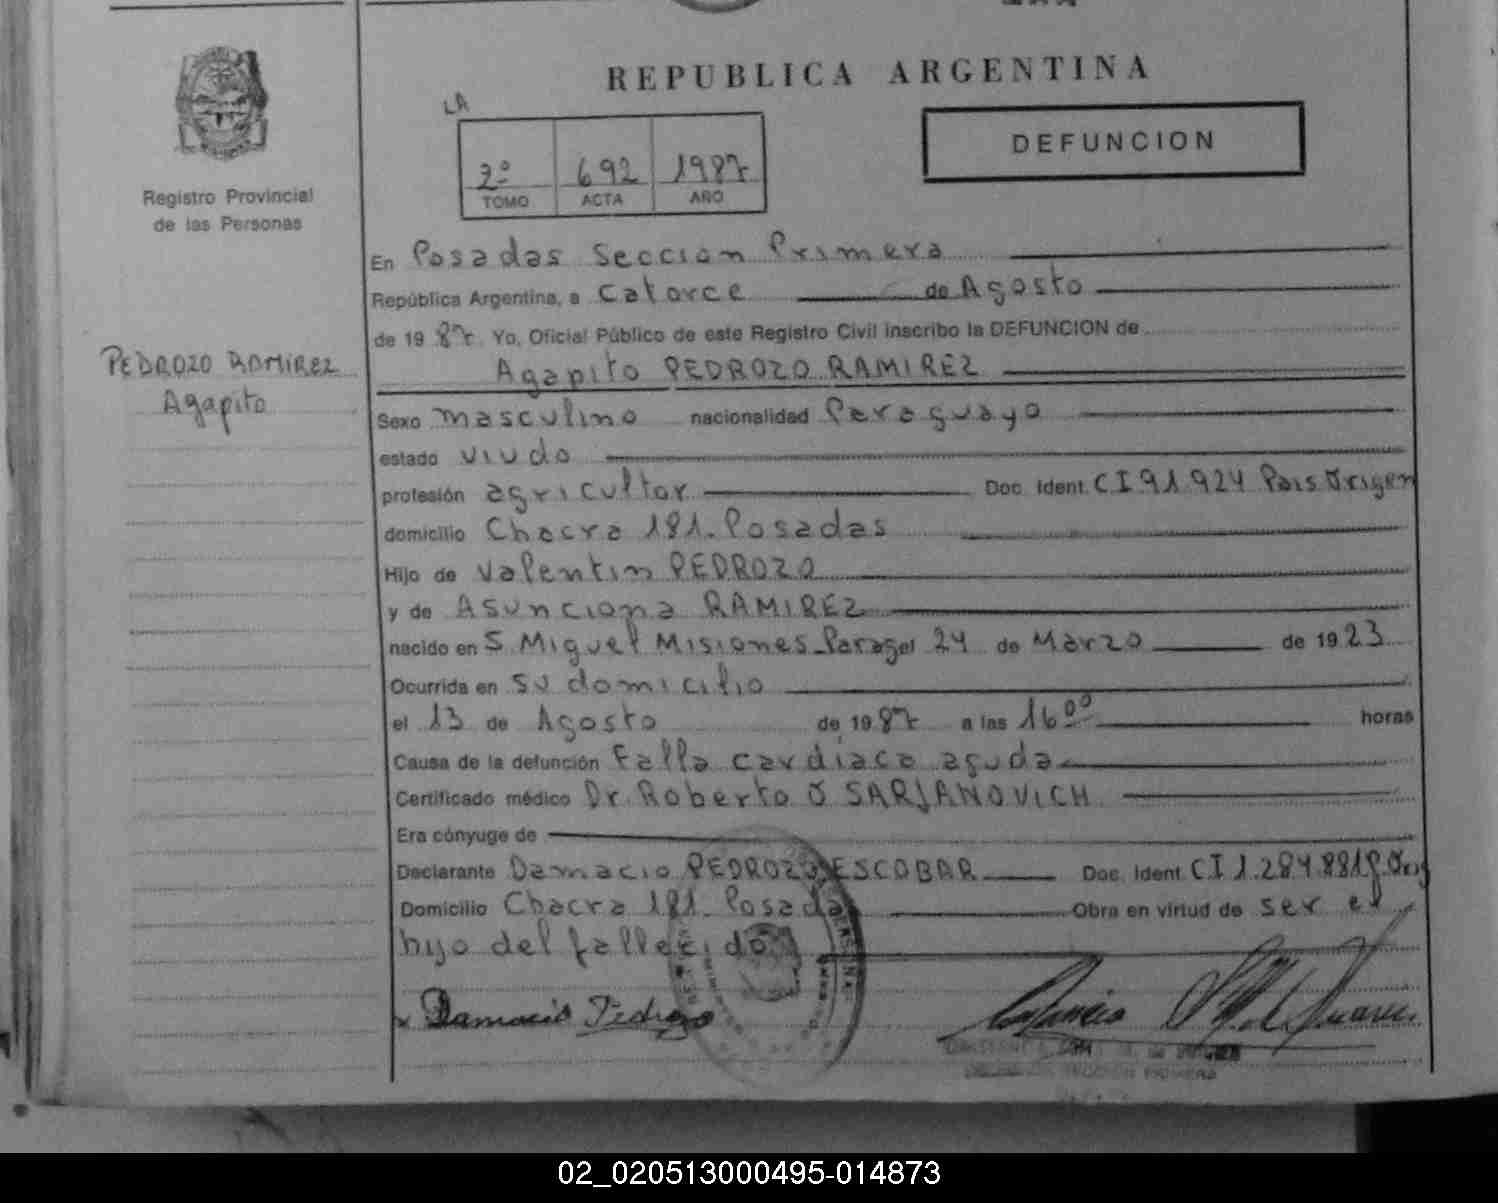 REPUBLICA ARGENTINA
LA
2º 692 1987
TOMO ACTA AÑO
DEFUNCION
Registro Provincial
de las Personas
PEDROZO RAMIREZ
Agapito
En Posadas Seccion Primera
República Argentina, a Catorce de Agosto
de 1987. Yo, Oficial Público de este Registro Civil inscribo la DEFUNCION de
Agapito PEDROZO RAMIREZ
Sexo masculino nacionalidad Paraguayo
estado viudo
profesión agricultor Doc. Ident. CI 91.924 Pais Origen
domicilio Chacra 181. Posadas
Hijo de Valentin PEDROZO
y de Asunciona RAMIREZ
nacido en S. Miguel Misiones Parag el 24 de Marzo de 1923
Ocurrida en su domicilio
el 13 de Agosto de 1987 a las 16⁰⁰ horas
Causa de la defunción Falla cardiaca aguda
Certificado médico Dr. Roberto O SARJANOVICH
Era cónyuge de
Declarante Damacio PEDROZO ESCOBAR Doc. Ident. CI 1.284.881 P. Orig
Domicilio Chacra 181. Posadas Obra en virtud de ser el
hijo del fallecido
x Damacio Pedrozo
SECCION PRIMERA
02_020513000495-014873